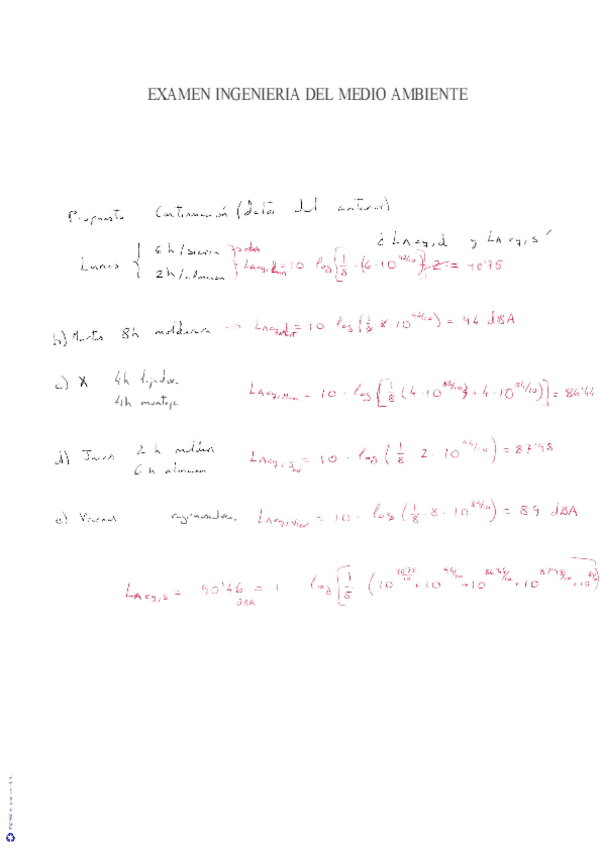 EXAMEN INGENIERIA DEL MEDIO AMBIENTE
Propuesto Continuación (datos del anterior)
¿ LAeq,d y LAeq,s ?
Lunes { 6 h / sierra
2 h / almacen } LAeq,Lun = 10 log [1/8 · (6 · 10^(92/10))] = 90'75
b) Martes 8h moldurera → LAeq, = 10 log (1/8 8 · 10^(94/10)) = 94 dBA
c) X 4h lijadora
4h montaje LAeq, = 10 · log [1/8 (4 · 10^(88/10) + 4 · 10^(84/10))] = 86'44
d) Jueves 2 h moldur
6 h almacen LAeq,Juev = 10 · log (1/8 · 2 · 10^(94/10)) = 87'98
e) Viernes LAeq,Vier = 10 · log (1/8 · 8 · 10^(89/10)) = 89 dBA
LAeq,s = 90'46 dBA = 1 log [1/5 (10^(90'75/10) + 10^(94/10) + 10^(86'44/10) + 10^(87'98/10) + 10